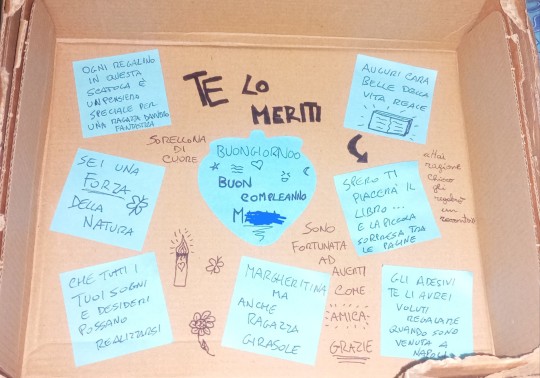 OGNI REGALINO
IN QUESTA
SCATOLA È
UN PENSIERO
SPECIALE PER
UNA RAGAZZA
FANTASTICA
TE LO
MERITI
AUGURI CARA
BELLE DELLA
VITA REALE
SORELLONA
DI
CUORE
BUONGIORNOO
BUON
COMPLEANNO
M
SEI UNA
FORZA
DELLA
NATURA
SPERO TI
PIACERÀ IL
LIBRO...
E LA PICCOLA
SORPRESA TRA
LE PAGINE
ragione
un
CHE TUTTI I
TUOI SOGNI
E DESIDERI
POSSANO
REALIZZARSI
MARGHERITINA
MA
ANCHE
RAGAZZA
GIRASOLE
SONO
FORTUNATA
AD
AVERTI
COME
AMICA
GRAZIE
GLI ADESIVI
TE LI AVREI
VOLUTI
REGALARE
QUANDO SONO
VENUTA A
NAPOLI